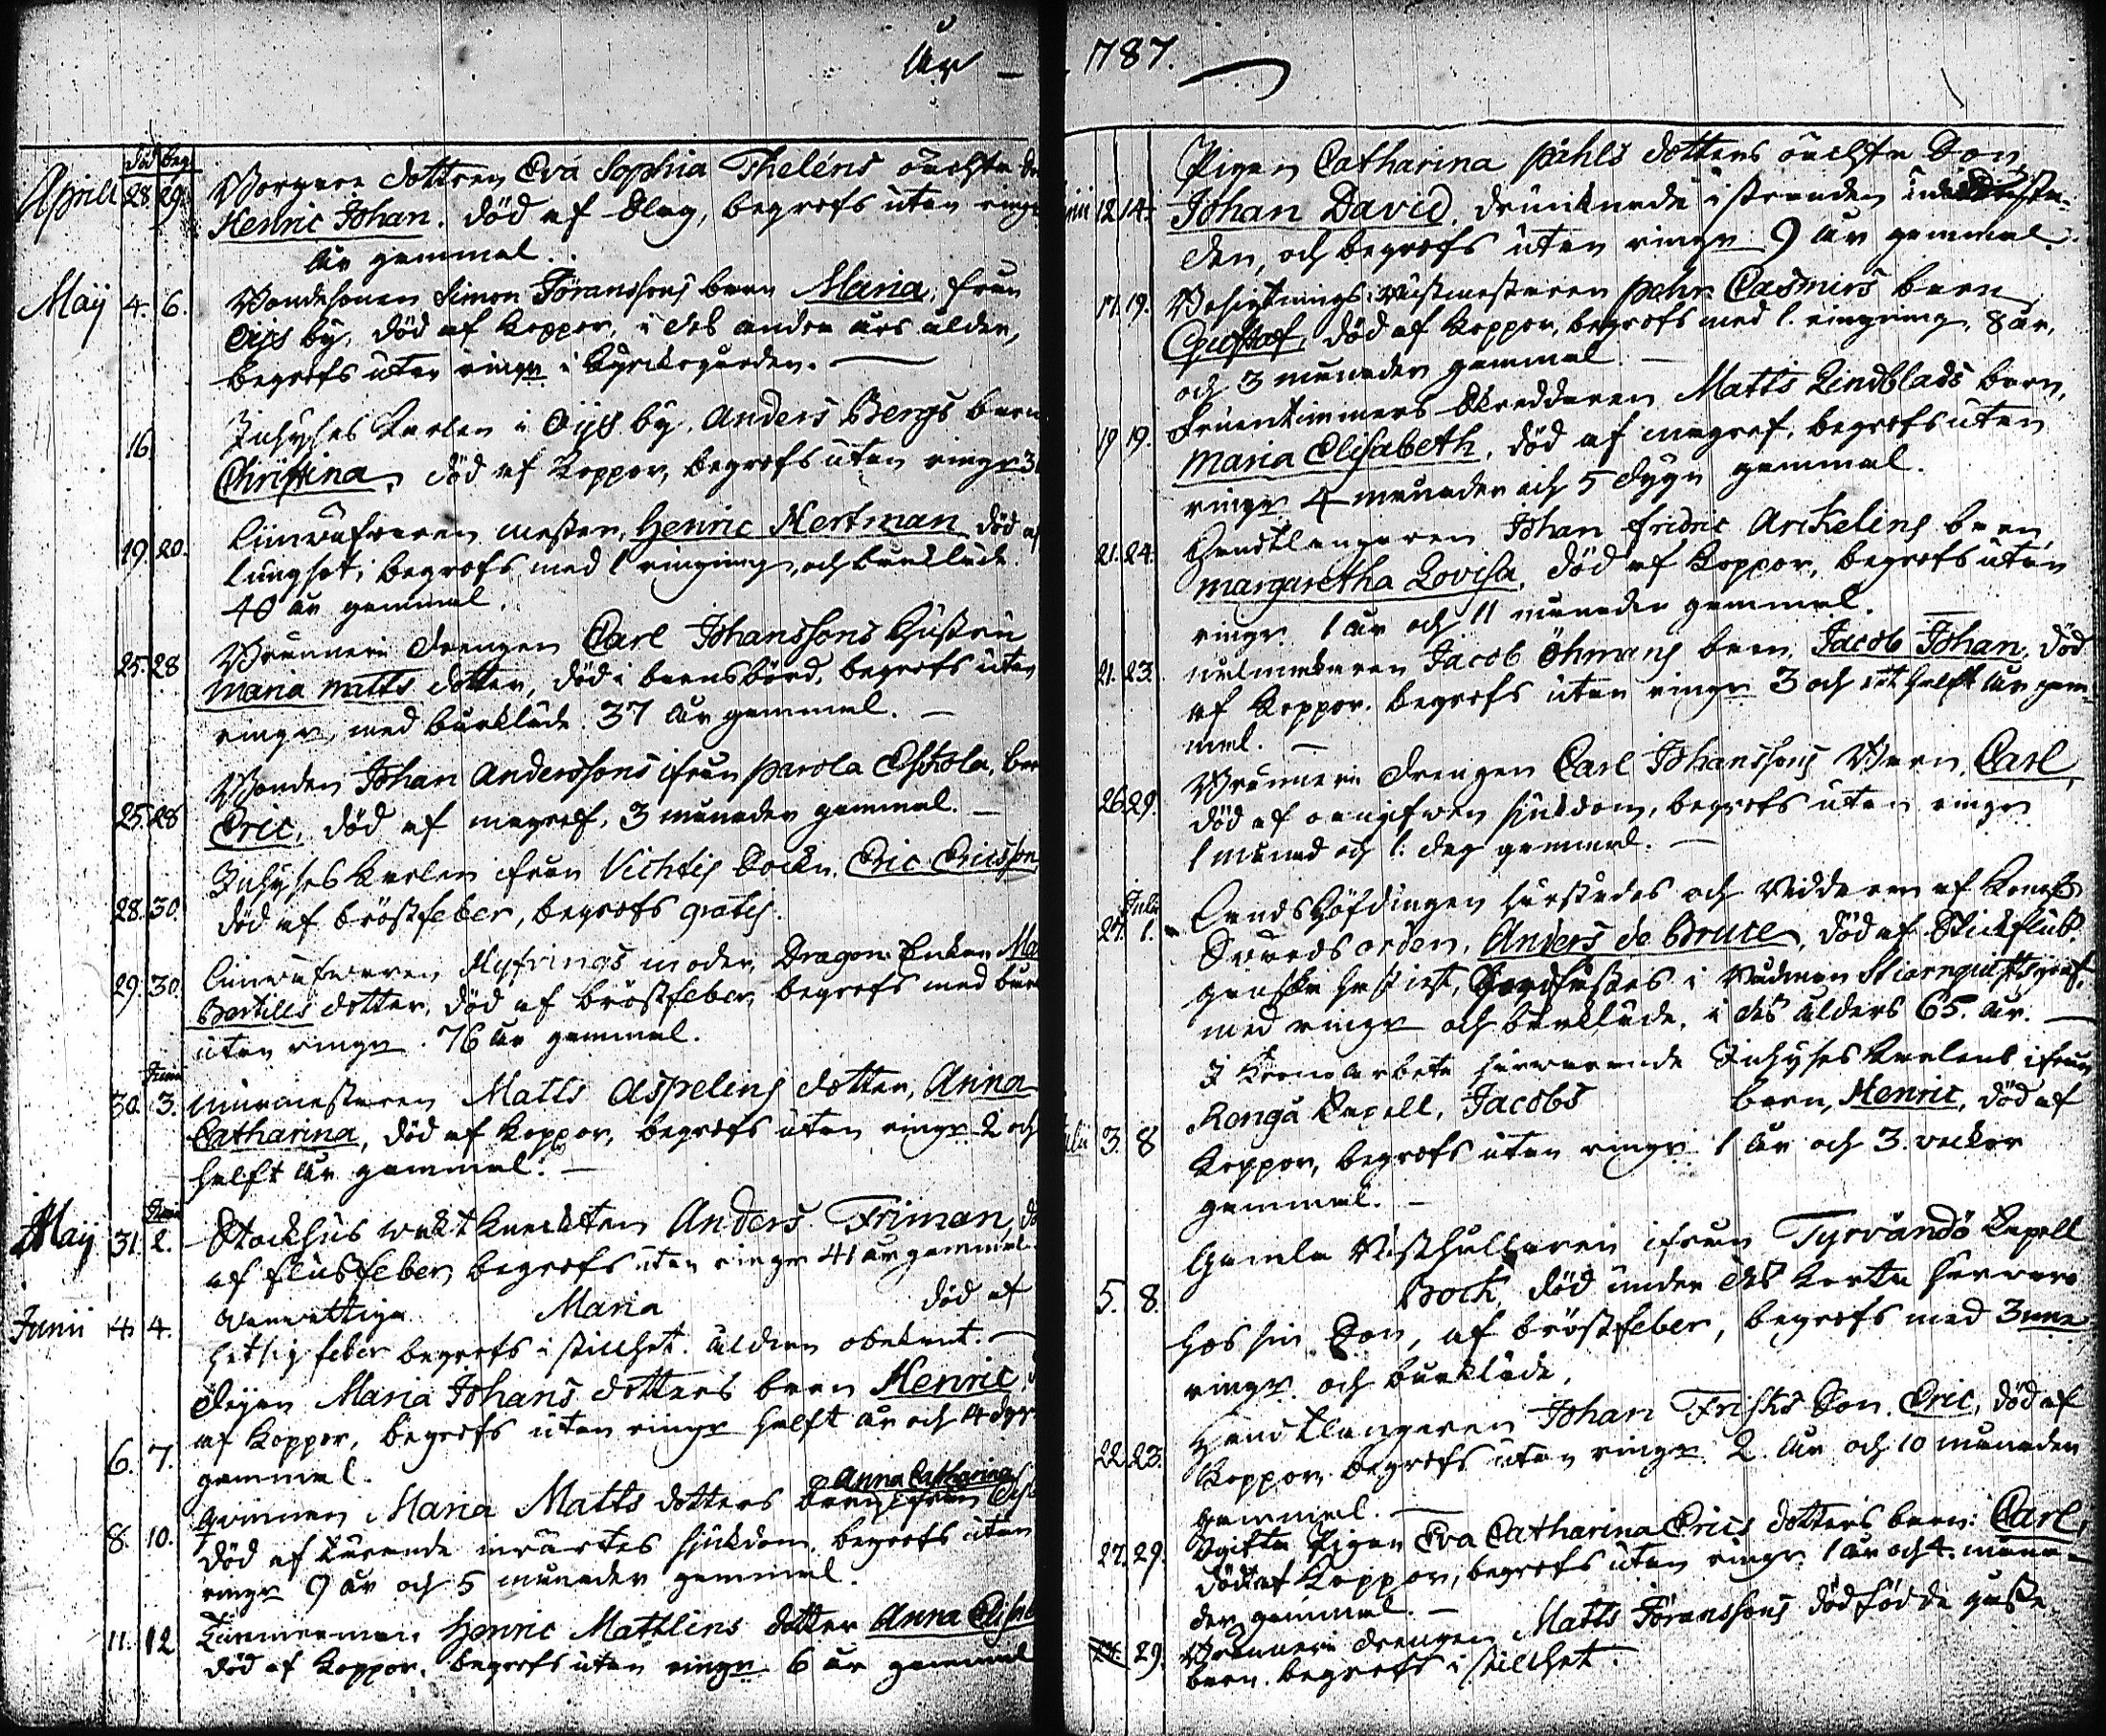 År 1787.
död beg.
Aprill 28. 29. Borgare dottren Eva Sophia Theléns oächta
Henric Johan. död af Slag, begrofs utan ringn
år gammal.
Maij 4. 6. Bondesonen Simon Jöranssons barn Maria, från
Oijs by, död af koppor, i des andra års ålder,
begrofs utan ringn i kyrkogården.
16. Inhyses Karlen i Oijs by, Anders Bergs barn
Christina, död af Koppor, begrofs utan ringn 3
19. 20. mästen, Henric Hertman död af
lungsot, begrofs med 1 ringning, och bårkläde.
40 år gammal.
25. 28 Brunneri drengen Carl Johanssons hustru
Maria Matts dotter, död i barnsbörd, begrofs utan
ringn, med bårkläde. 37 år gammal.
25. 28 Bonden Johan Anderssons ifrån Parola
Eric, död af magref, 3 månader gammal.
28. 30. Inhyses Karlen ifrån Vichtis Sockn. Eric Ericsson
död af bröstfeber, begrofs gratis.
29. 30. moder, Dragon Enkan
Bertills dotter, död af bröstfeber, begrofs med
utan ringn. 76 år gammal.
Junii
30. 3. murmästaren Matts Aspelins dotter, Anna
Catharina, död af koppor, begrofs utan ringn 2 och
halft år gammal.
Junii
Maij 31. 2. Stockhus wakt knechten Anders Friman,
af flussfeber, begrofs utan ringn 41 år gammal.
Junii 4. 4. Maria död af
hetsig feber begrofs i stillhet. ålders obekant.
6. 7. Pigan Maria Johans dotters barn Henric
af koppor, begrofs utan ringn halft år och 14 dygn
gammal.
Anna Catharina
8. 10. qvinnan Maria Matts dotters barn ifrån
död af invärtes siukdom, begrofs utan
ringn 9 år och 5 månader gammal.
11. 12 Timmerman Henric Mathlins dotter Anna
död af koppor. begrofs utan ringn 6 år gammal
12. 14. Pigan Catharina Påhls dotters oächta Son
Johan David, drunknade i stranden
den, och begrofs utan ringn 9 år gammal.
17. 19. Besigtnings Pehr Casmirs barn
Gustaf, död af koppor, begrofs med 1. ringning, 8 år,
och 3 månader gammal.
19 19. Fruentimmers Skreddaren Matts Lindblads barn,
Maria Elisabeth, död af magref, begrofs utan
ringn 4 månader och 5 dygn gammal.
21. 24. Handtlangaren Johan Fridric Arckelins barn
Margaretha Lovisa, död af koppor, begrofs utan
ringn 1 år och 11 månader gammal.
21. 23. Jacob Öhmans barn Jacob Johan, död
af koppor. begrofs utan ringn 3 och ett halft år gam-
mal.
26. 29. Brunneri drengen Carl Johanssons Barn, Carl,
död af oangifven siukdom, begrofs utan ringn
1 månad och 1. dag gammal.
Julii
27. 1. Landshöfdingen härstädes och Riddaren af Kongl.
Svärds orden, Anders de Bruce, död af Stickfluss
ganska hastigt, i Rådman Stiernquists graf,
med ringn och bårkläde, i des ålders 65. år.
I Krono arbete härvarande Inhyses Karlens ifrån
Julii 3. 8 Rengå Capell, Jacobs barn, Henric, död af
Koppor, begrofs utan ringn 1 år och 3. veckor
gammal.
5. 8. Gamla ifrån Tyrvändö Capell
Bock död under des korta
hos sin Son, af bröstfeber, begrofs med 3nne
ringn. och bårkläde.
22. 23. Handtlangaren Johan Frisks Son. Eric, död af
Koppor, begrofs utan ringn. 2. år och 10 månader
gammal.
27. 29. Ogifta Pigan Eva Catharina Erics dotters barn: Carl,
död af koppor, begrofs utan ringn 1 år och 4. måna-
der gammal.
29. Brunneri drengen Matts Jöranssons dödfödde
barn. begrofs i stillhet.